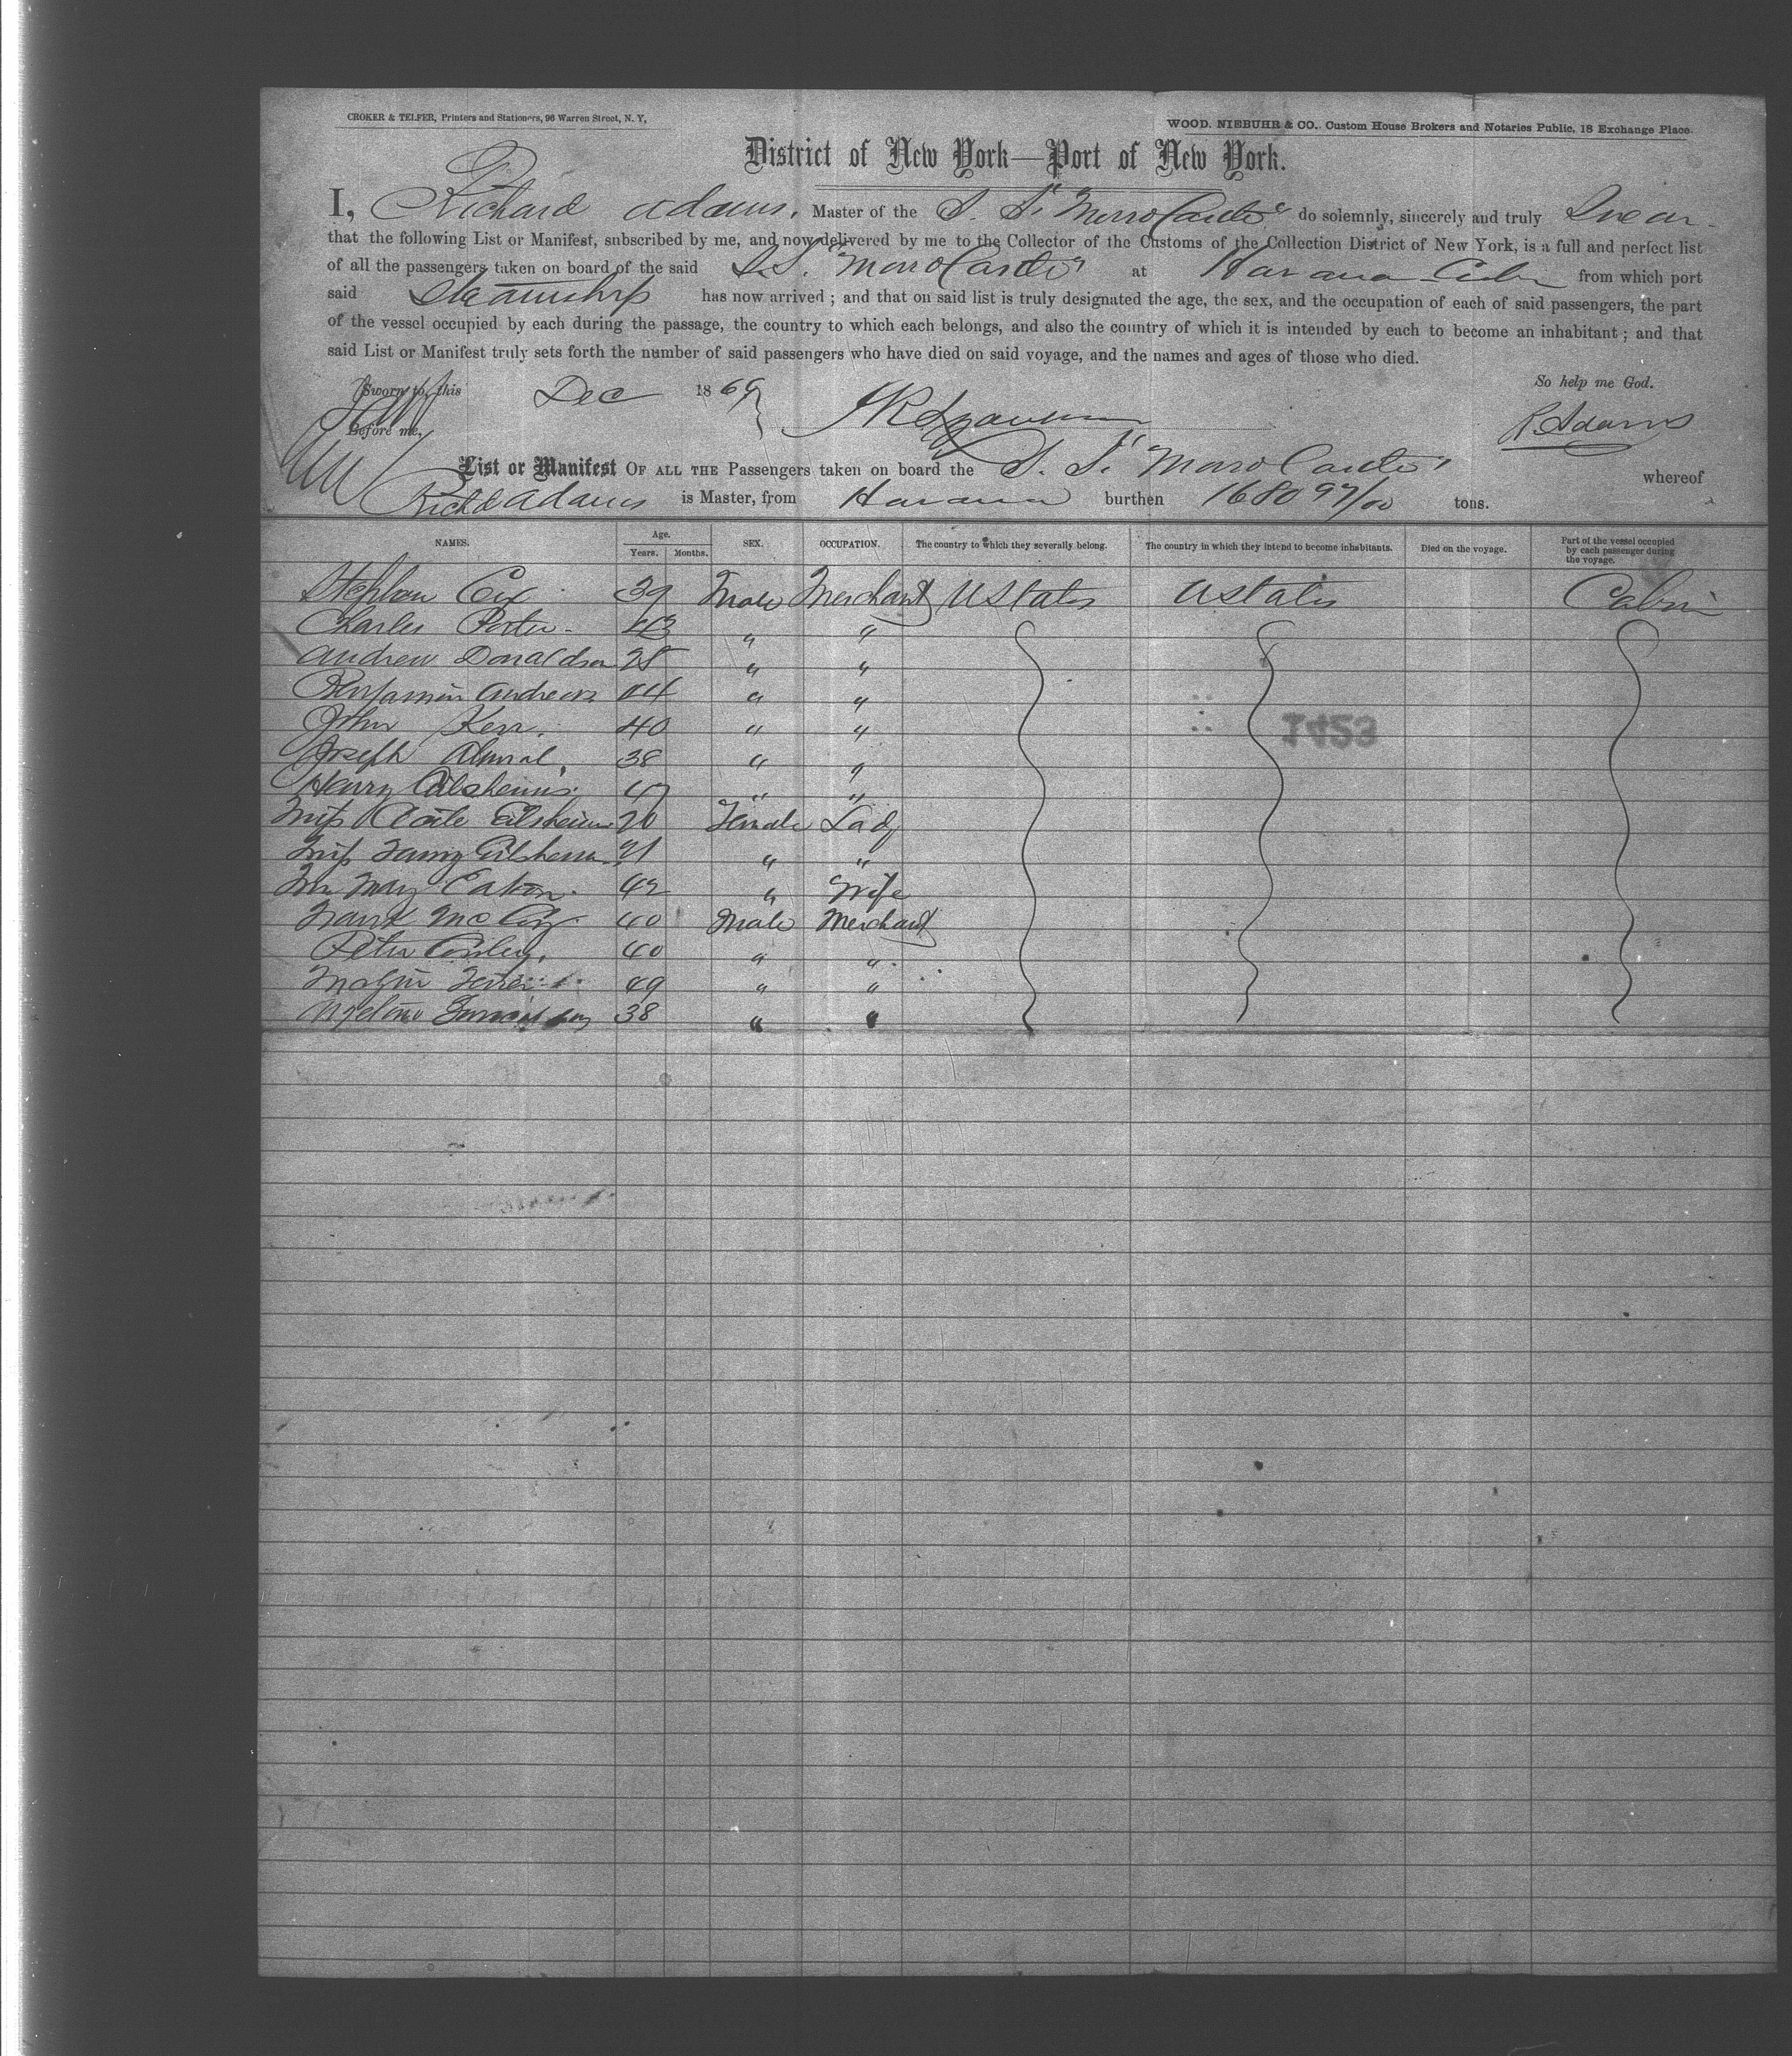 CROKER & TELFER, Printers and Stationers, 96 Warren Street, N. Y,
WOOD, NIEBUHR & CO. Custom House Brokers and Notaries Public, 18 Exchange Place.
District of New York—Port of New York.
I, Richard Adams, Master of the S. S. "Morro Castle" do solemnly, sincerely and truly Swear
that the following List or Manifest, subscribed by me, and now delivered by me to the Collector of the Customs of the Collection District of New York, is a full and perfect list
of all the passengers taken on board of the said S.S. "Morro Castle" at Havana Cuba from which port
said Steamship has now arrived ; and that on said list is truly designated the age, the sex, and the occupation of each of said passengers, the part
of the vessel occupied by each during the passage, the country to which each belongs, and also the country of which it is intended by each to become an inhabitant ; and that
said List or Manifest truly sets forth the number of said passengers who have died on said voyage, and the names and ages of those who died.
Sworn to, this Dec 1869 So help me God.
Before me, R Adams
List or Manifest OF ALL THE Passengers taken on board the S. S. "Morro Castle" whereof
Richd Adams is Master, from Havana burthen 1680 97/00 tons.
NAMES. Age. Years. Months. SEX. OCCUPATION. The country to which they severally belong. The country in which they intend to become inhabitants. Died on the voyage. Part of the vessel occupied by each passenger during the voyage.
Stephen Cox 39 Male Merchant U States U States Cabin
Charles Porter 43 " "
Andrew Donaldson 28 " "
Benjamin Andrews 44 " "
John Kerr. 40 " "
Joseph 38 " "
Henry " "
Miss 20 Female Lady
Miss Fanny 21 " "
Mrs Mary Eaton 42 " Wife
Frank McCoy 40 Male Merchant
Peter 40 " "
49 " "
38 " "
1453